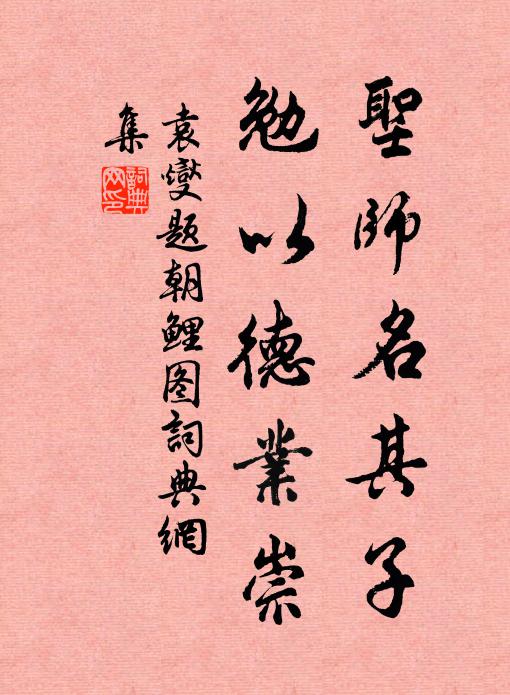 聖師名其子
勉以德業崇
袁燮題朝鯉图詞典網
集
詞典
网印